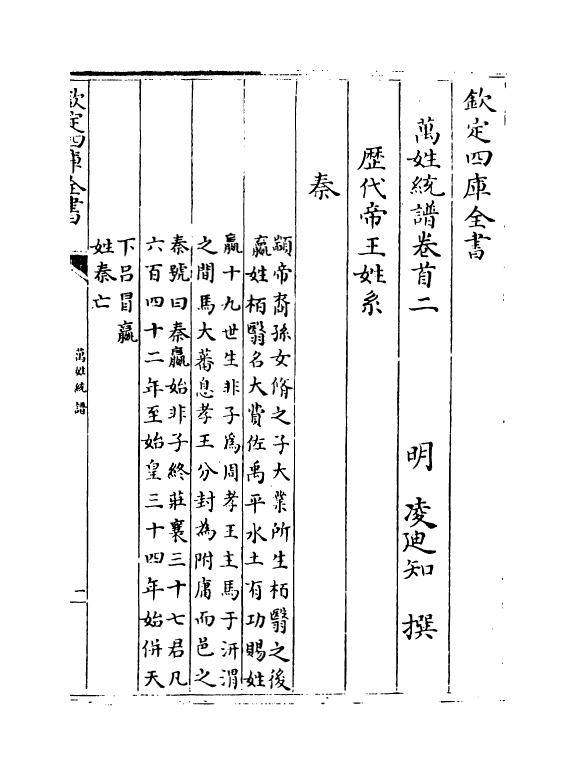 欽定四庫全書
萬姓統譜卷首二
明 凌迪知 撰
歴代帝王姓系
秦
顓帝裔孫女脩之子大業所生栢翳之後
嬴姓栢翳名大費佐禹平水土有功賜姓
嬴十九世生非子爲周孝王主馬于汧渭
之間馬大蕃息孝王分封為附庸而邑之
秦號曰秦嬴始非子終莊襄三十七君凡
六百四十二年至始皇三十四年始併天
下吕冒嬴
姓秦亡
欽定四庫全書
萬姓統譜
二